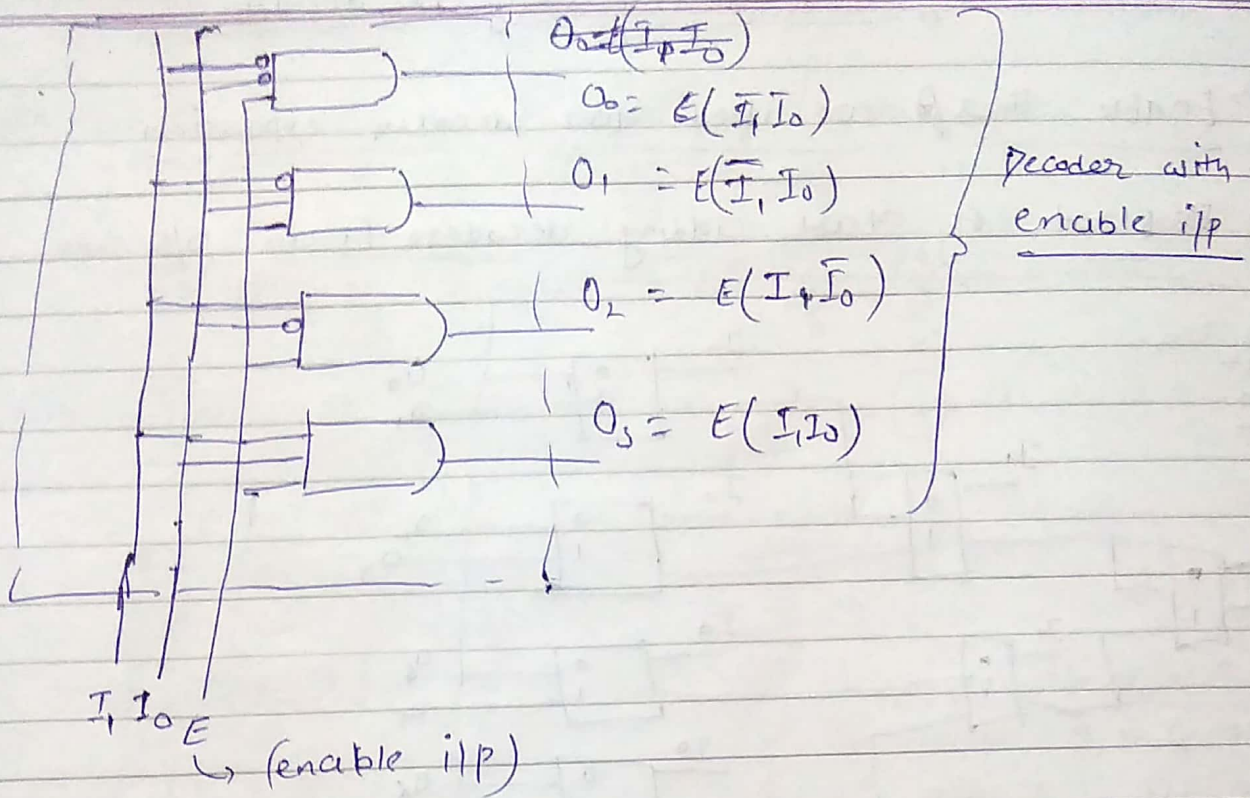 O₀ = E(I̅₁ I̅₀)
O₁ = E(I̅₁ I₀)
O₂ = E(I₁ I̅₀)
O₃ = E(I₁ I₀)
Decoder with
enable i/p
I₁ I₀ E
↳ (enable i/p)